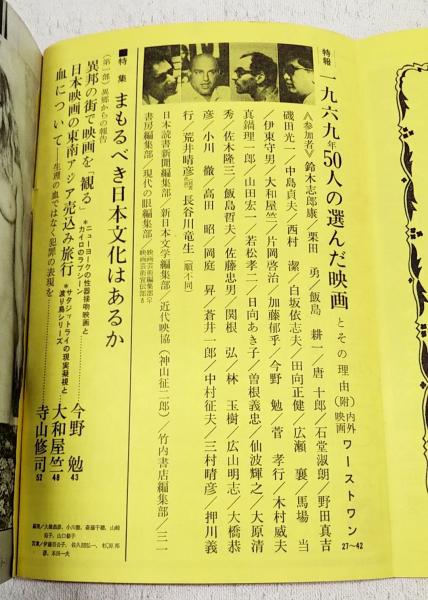 特報 一九六九年50人の選んだ映画とその理由(附)内外映画ワーストワン 27〜42
≪参加者≫鈴木志郎康/栗田 勇/飯島 耕一/唐 十郎/石堂淑朗/野田真吉
磯田光一/中島貞夫/西村 潔/白坂依志夫/田向正健/広瀬 襄/馬場 当
/伊東守男/大和屋竺/片岡啓治/加藤郁乎/今野 勉/菅 孝行/木村威夫
真鍋理一郎/山田宏一/若松孝二/日向あき子/曽根義忠/仙波輝之/大原清
秀/佐木隆三/飯島哲夫/佐藤忠男/関根 弘/林 玉樹/広山明志/大橋恭
彦/小川 徹/高田 昭/岡庭 昇/蒼井一郎/中村征夫/三村晴彦/押川義
行/荒井晴彦/長谷川竜生(順不同)
日本読書新聞編集部/新日本文学編集部/近代映協(神山征二郎)/竹内書店編集部/三一
書房編集部/現代の眼編集部/
■特集 まもるべき日本文化はあるか
(第一部)異郷からの報告
異邦の街で映画を「観る」 *ニューヨークの性器接吻映画とカイロのラブシーン 今野 勉 43
日本映画の東南アジア売込み旅行 *サタジット・ライの現実凝視と渡り鳥シリーズ 大和屋竺 48
血について 生理の血ではなく犯罪の表現を 寺山修司 52